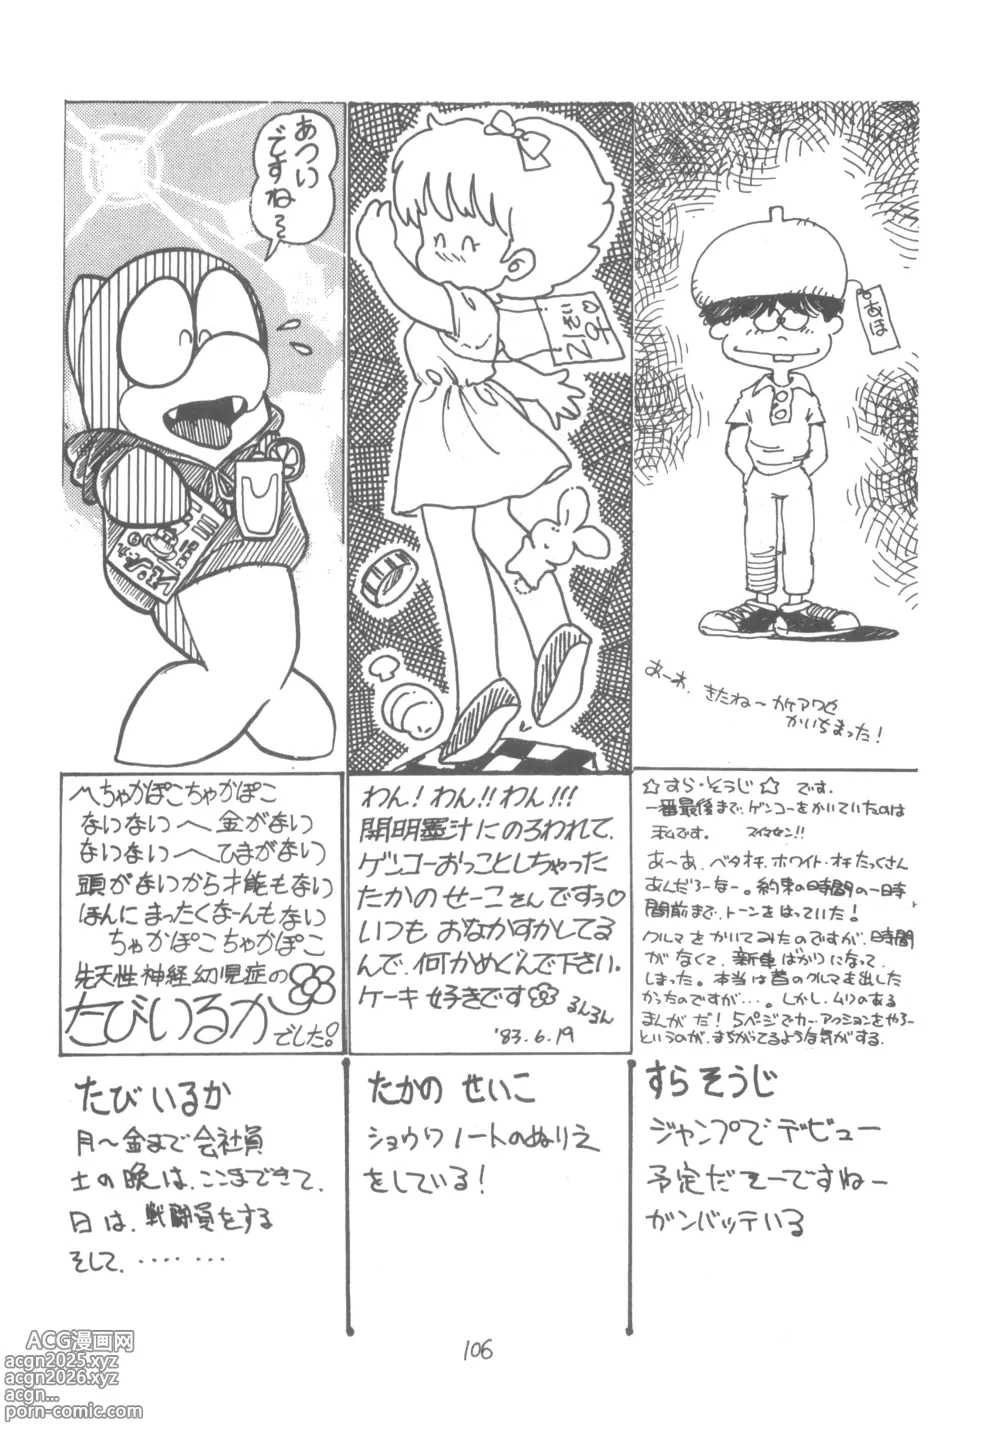 あつい
ですね〜
あほ
あーあ、きたね〜カケアワセ
かいちまった！
へちゃかぽこちゃかぽこ
ないないへ金がない
ないないへひまがない
頭がないから才能もない
ほんにまったくなーんもない
ちゃかぽこちゃかぽこ
先天性神経幼児症の
たびいるか
でした。
わん！わん!!わん!!!
開明墨汁にのろわれて、
ゲンコーおっことしちゃった
たかのせーこさんですぅ♡
いつもおなかすかしてる
んで、何かめぐんで下さい。
ケーキ好きです
るんるん
'83.6.19
☆すら・そうじ☆です。
一番最後まで、ゲンコーをかいていたのは
私です。スイマセン!!
あ〜あ、ベタオチ、ホワイト・オチたっくさん
あんだろーなー。約束の時間の一時
間前まで、トーンをはっていた！
クルマをかいてみたのですが、時間
がなくて、新車ばかりになって、
しまった。本当は昔のクルマを出した
かったのですが…。しかし、ムリのある
まんがだ！5ページでカーアクションをやろー
というのが、まちがってるような気がする。
たびいるか
月〜金まで会社員
土の晩は、ここまできて、
日は、戦闘員をする
そして、‥‥‥‥
たかの せいこ
ショウワノートのぬりえ
をしている！
すらそうじ
ジャンプでデビュー
予定だそーですねー
ガンバッテいる
106
ACG漫画网
acgn2025.xyz
acgn2026.xyz
acgn...
porn-comic.com